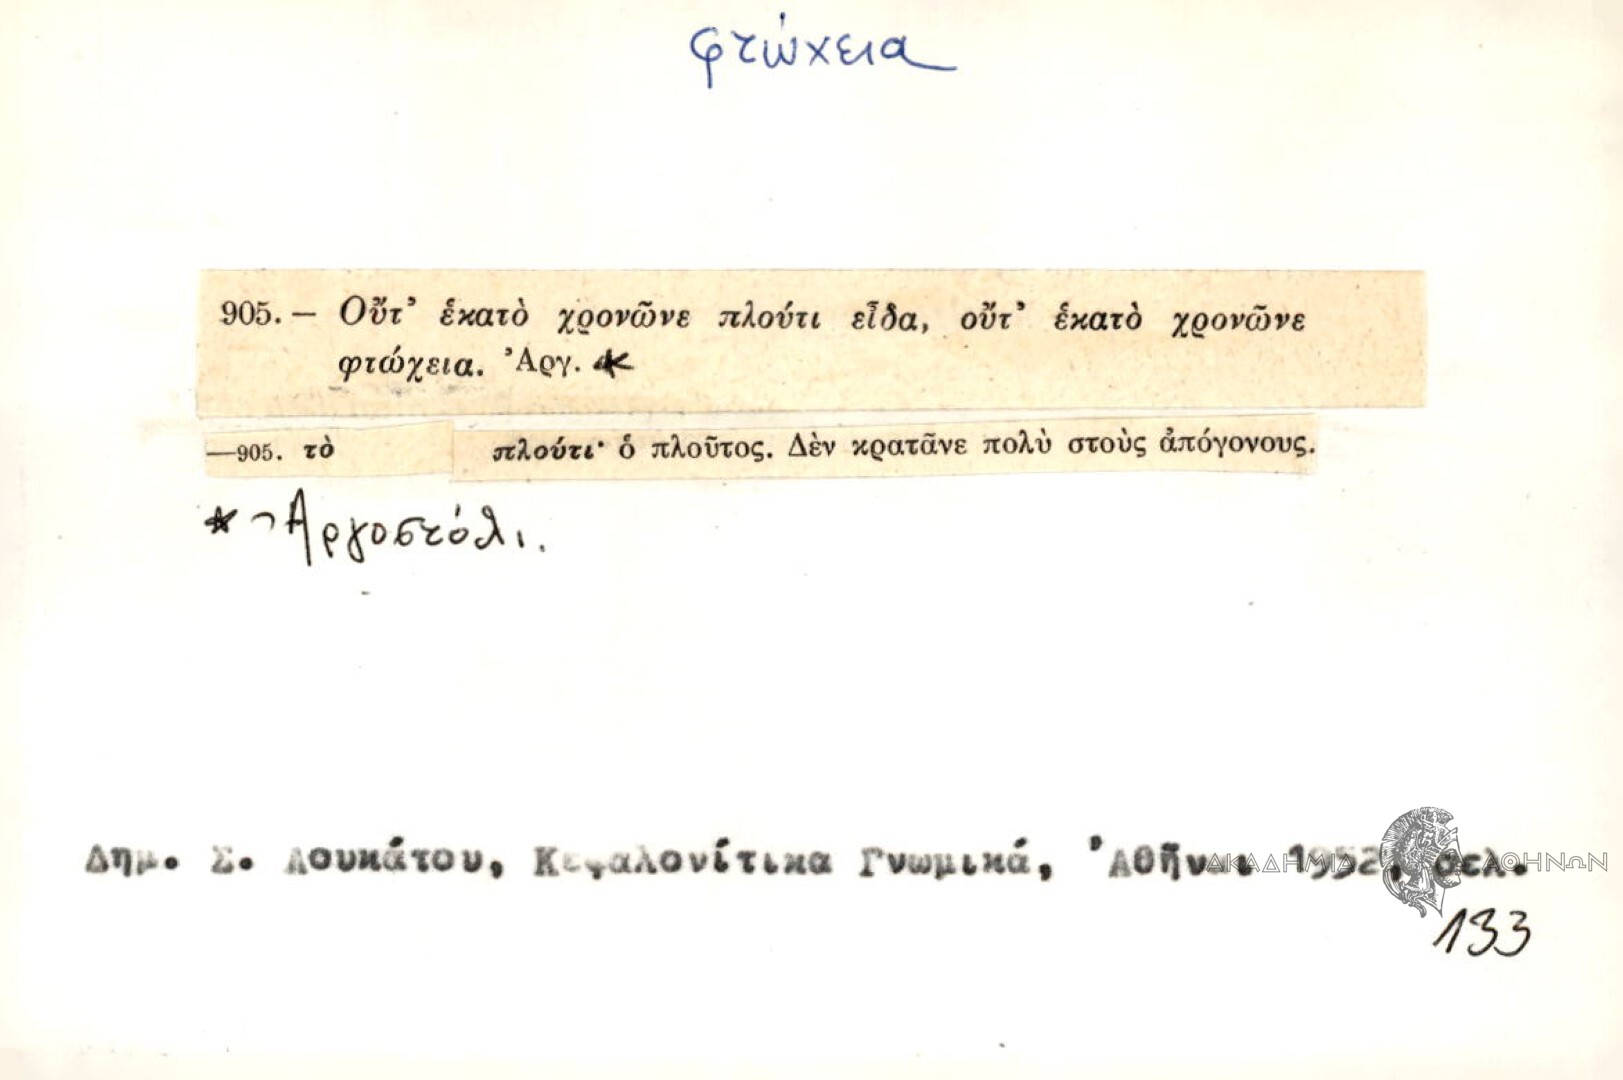 φτώχεια
905. — Οὔτ' ἑκατὸ χρονῶνε πλούτι εἶδα, οὔτ' ἑκατὸ χρονῶνε
φτώχεια. Ἀργ. *
—905. τὸ πλούτι· ὁ πλοῦτος. Δὲν κρατᾶνε πολὺ στοὺς ἀπόγονους.
* Ἀργοστόλι.
Δημ. Σ. Λουκάτου, Κεφαλονίτικα Γνωμικά, Ἀθῆναι 1952, σελ.
133
ΑΚΑΔΗΜΙΑ ΑΘΗΝΩΝ